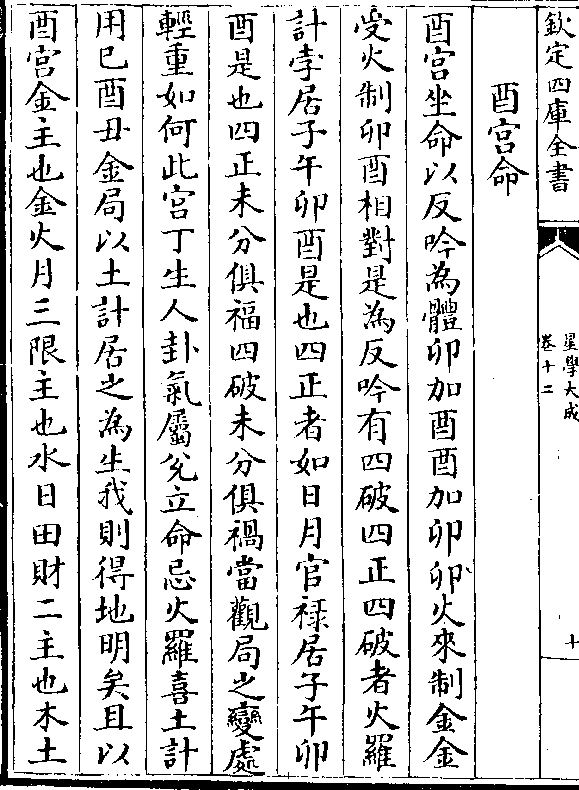 欽定四庫全書
星學大成
卷十二
十
酉宮命
酉宮坐命以反吟為體卯加酉酉加卯卯火來制金金
受火制卯酉相對是為反吟有四破四正四破者火羅
計孛居子午卯酉是也四正者如日月官禄居子午卯
酉是也四正未分俱福四破未分俱禍當觀局之變處
輕重如何此宮丁生人卦氣屬兊立命忌火羅喜土計
用巳酉丑金局以土計居之為生我則得地明矣且以
酉宮金主也金火月三限主也水日田財二主也木土